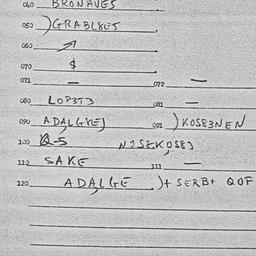 040 BRONAVES
050 )GRABL8ES
060
070 $
071 — 072 —
080 LOP3T3 081 —
090 ADALG8E) 091 )KOS83NEN
100 Q-5 N2SEKOS83
110 SAKE 111 —
120 ADALGE )+ SERB+ QOF